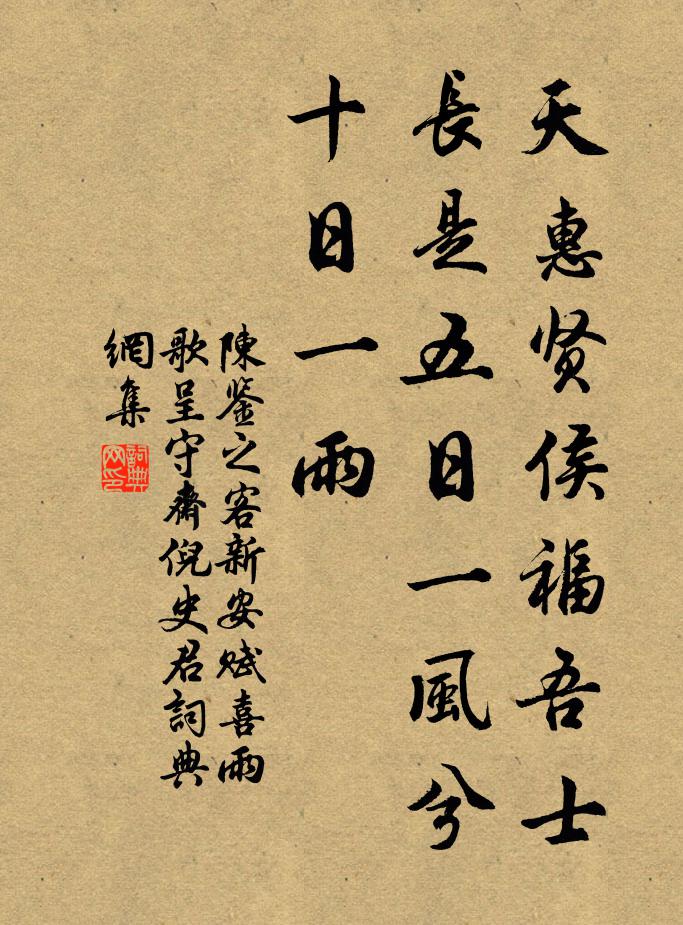 天惠贤侯福吾士
長是五日一風兮
十日一雨
陳鉴之客新安赋喜雨
歌呈守齋倪史君詞典
網集
詞典
网印